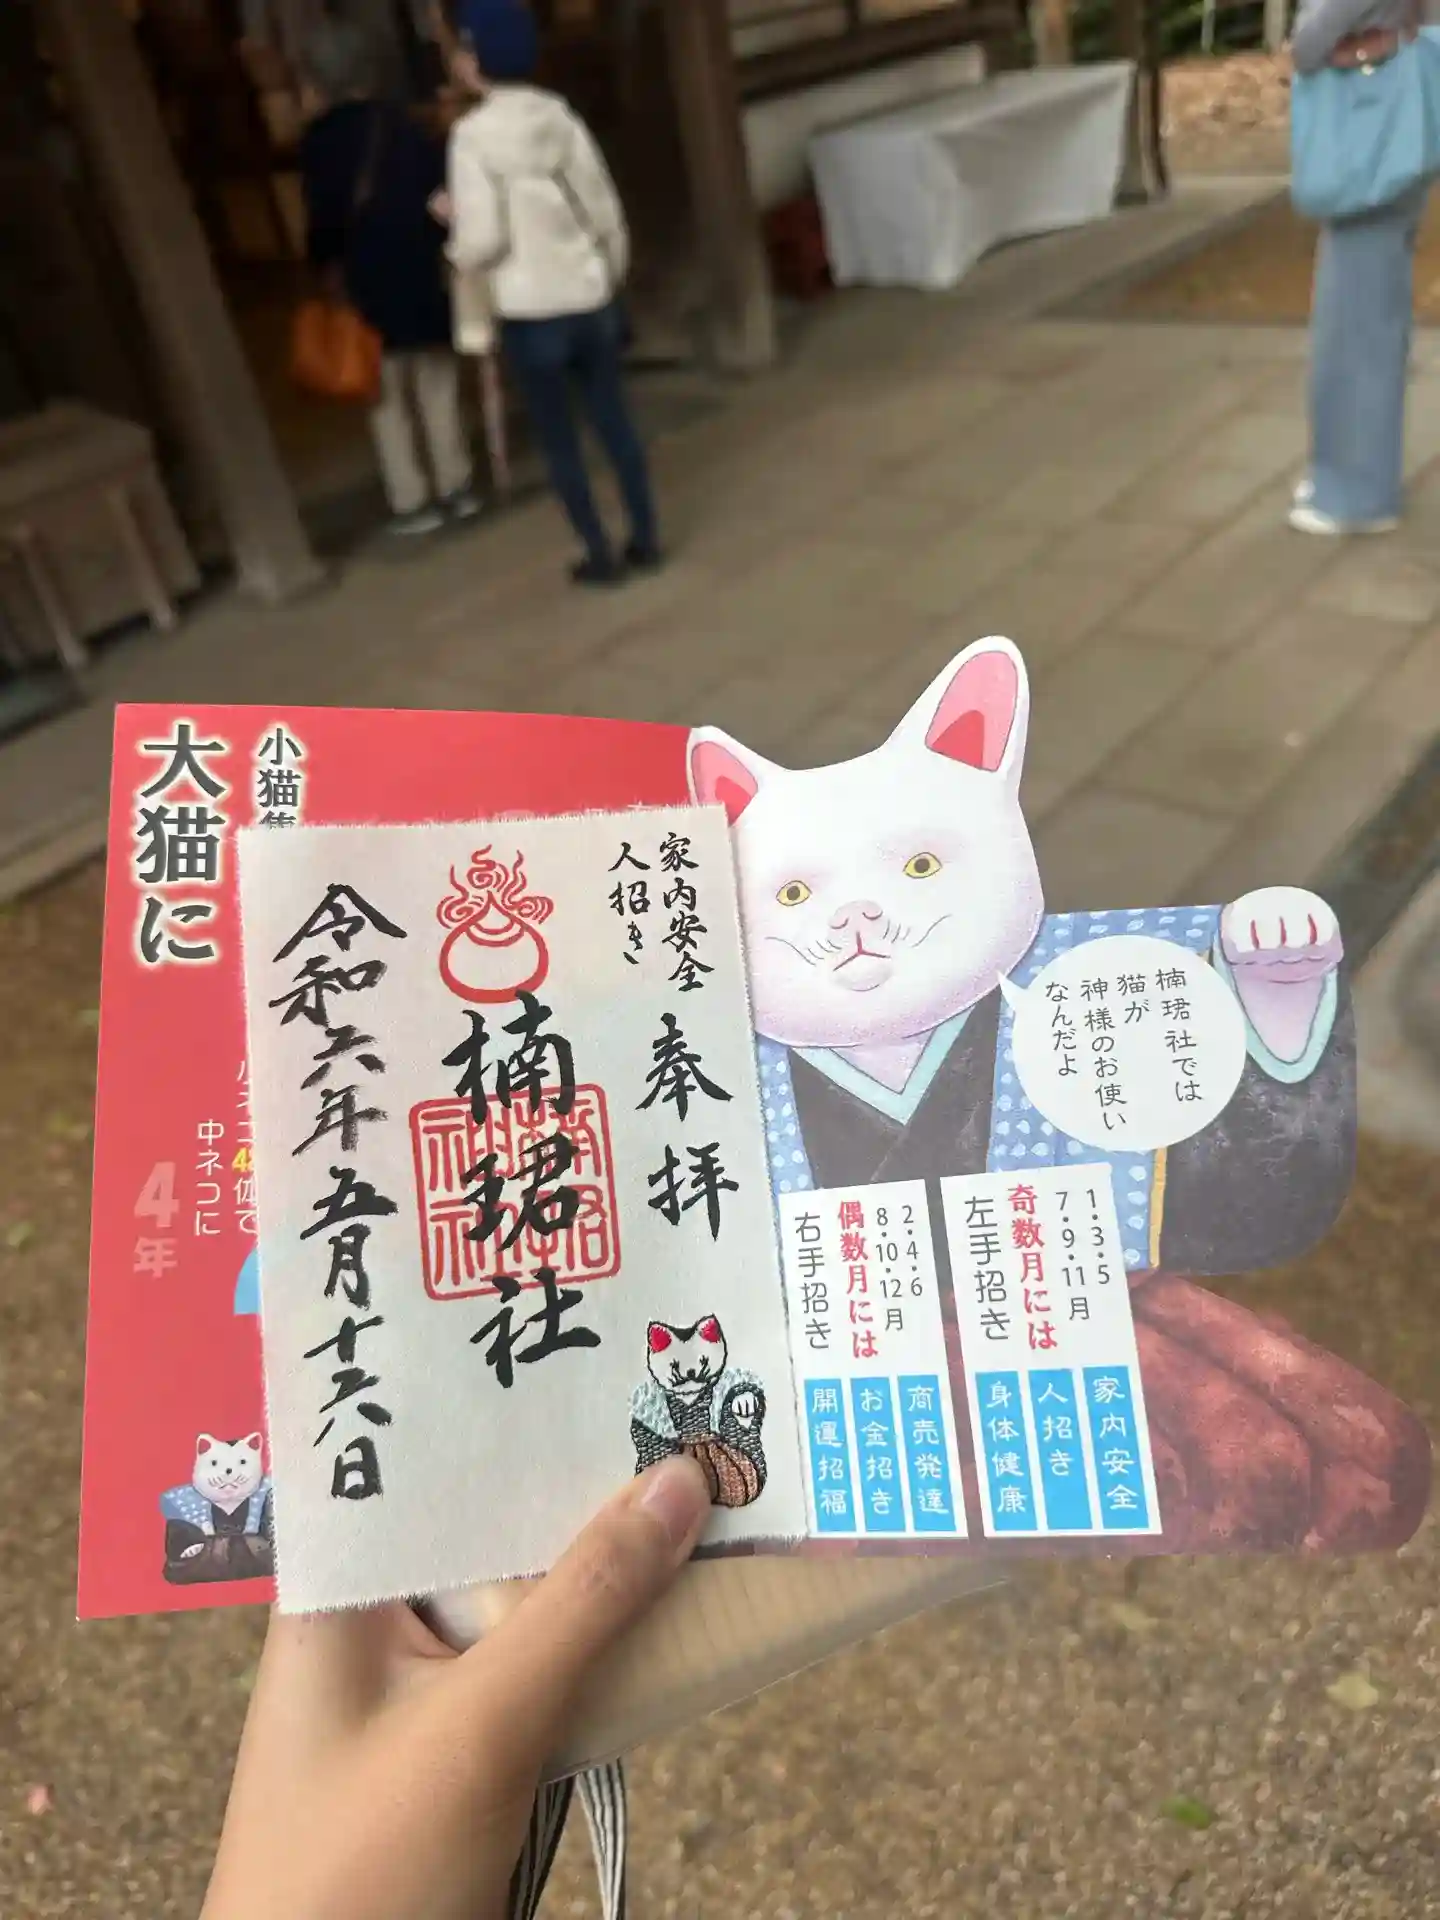 小猫
大猫に
48体で
中ネコに
4年
家内安全
人招き
奉拝
楠珺社
令和六年五月十六日
楠珺社では
猫が
神様のお使い
なんだよ
1・3・5
7・9・11月
奇数月には
左手招き
家内安全
人招き
身体健康
2・4・6
8・10・12月
偶数月には
右手招き
商売発達
お金招き
開運招福